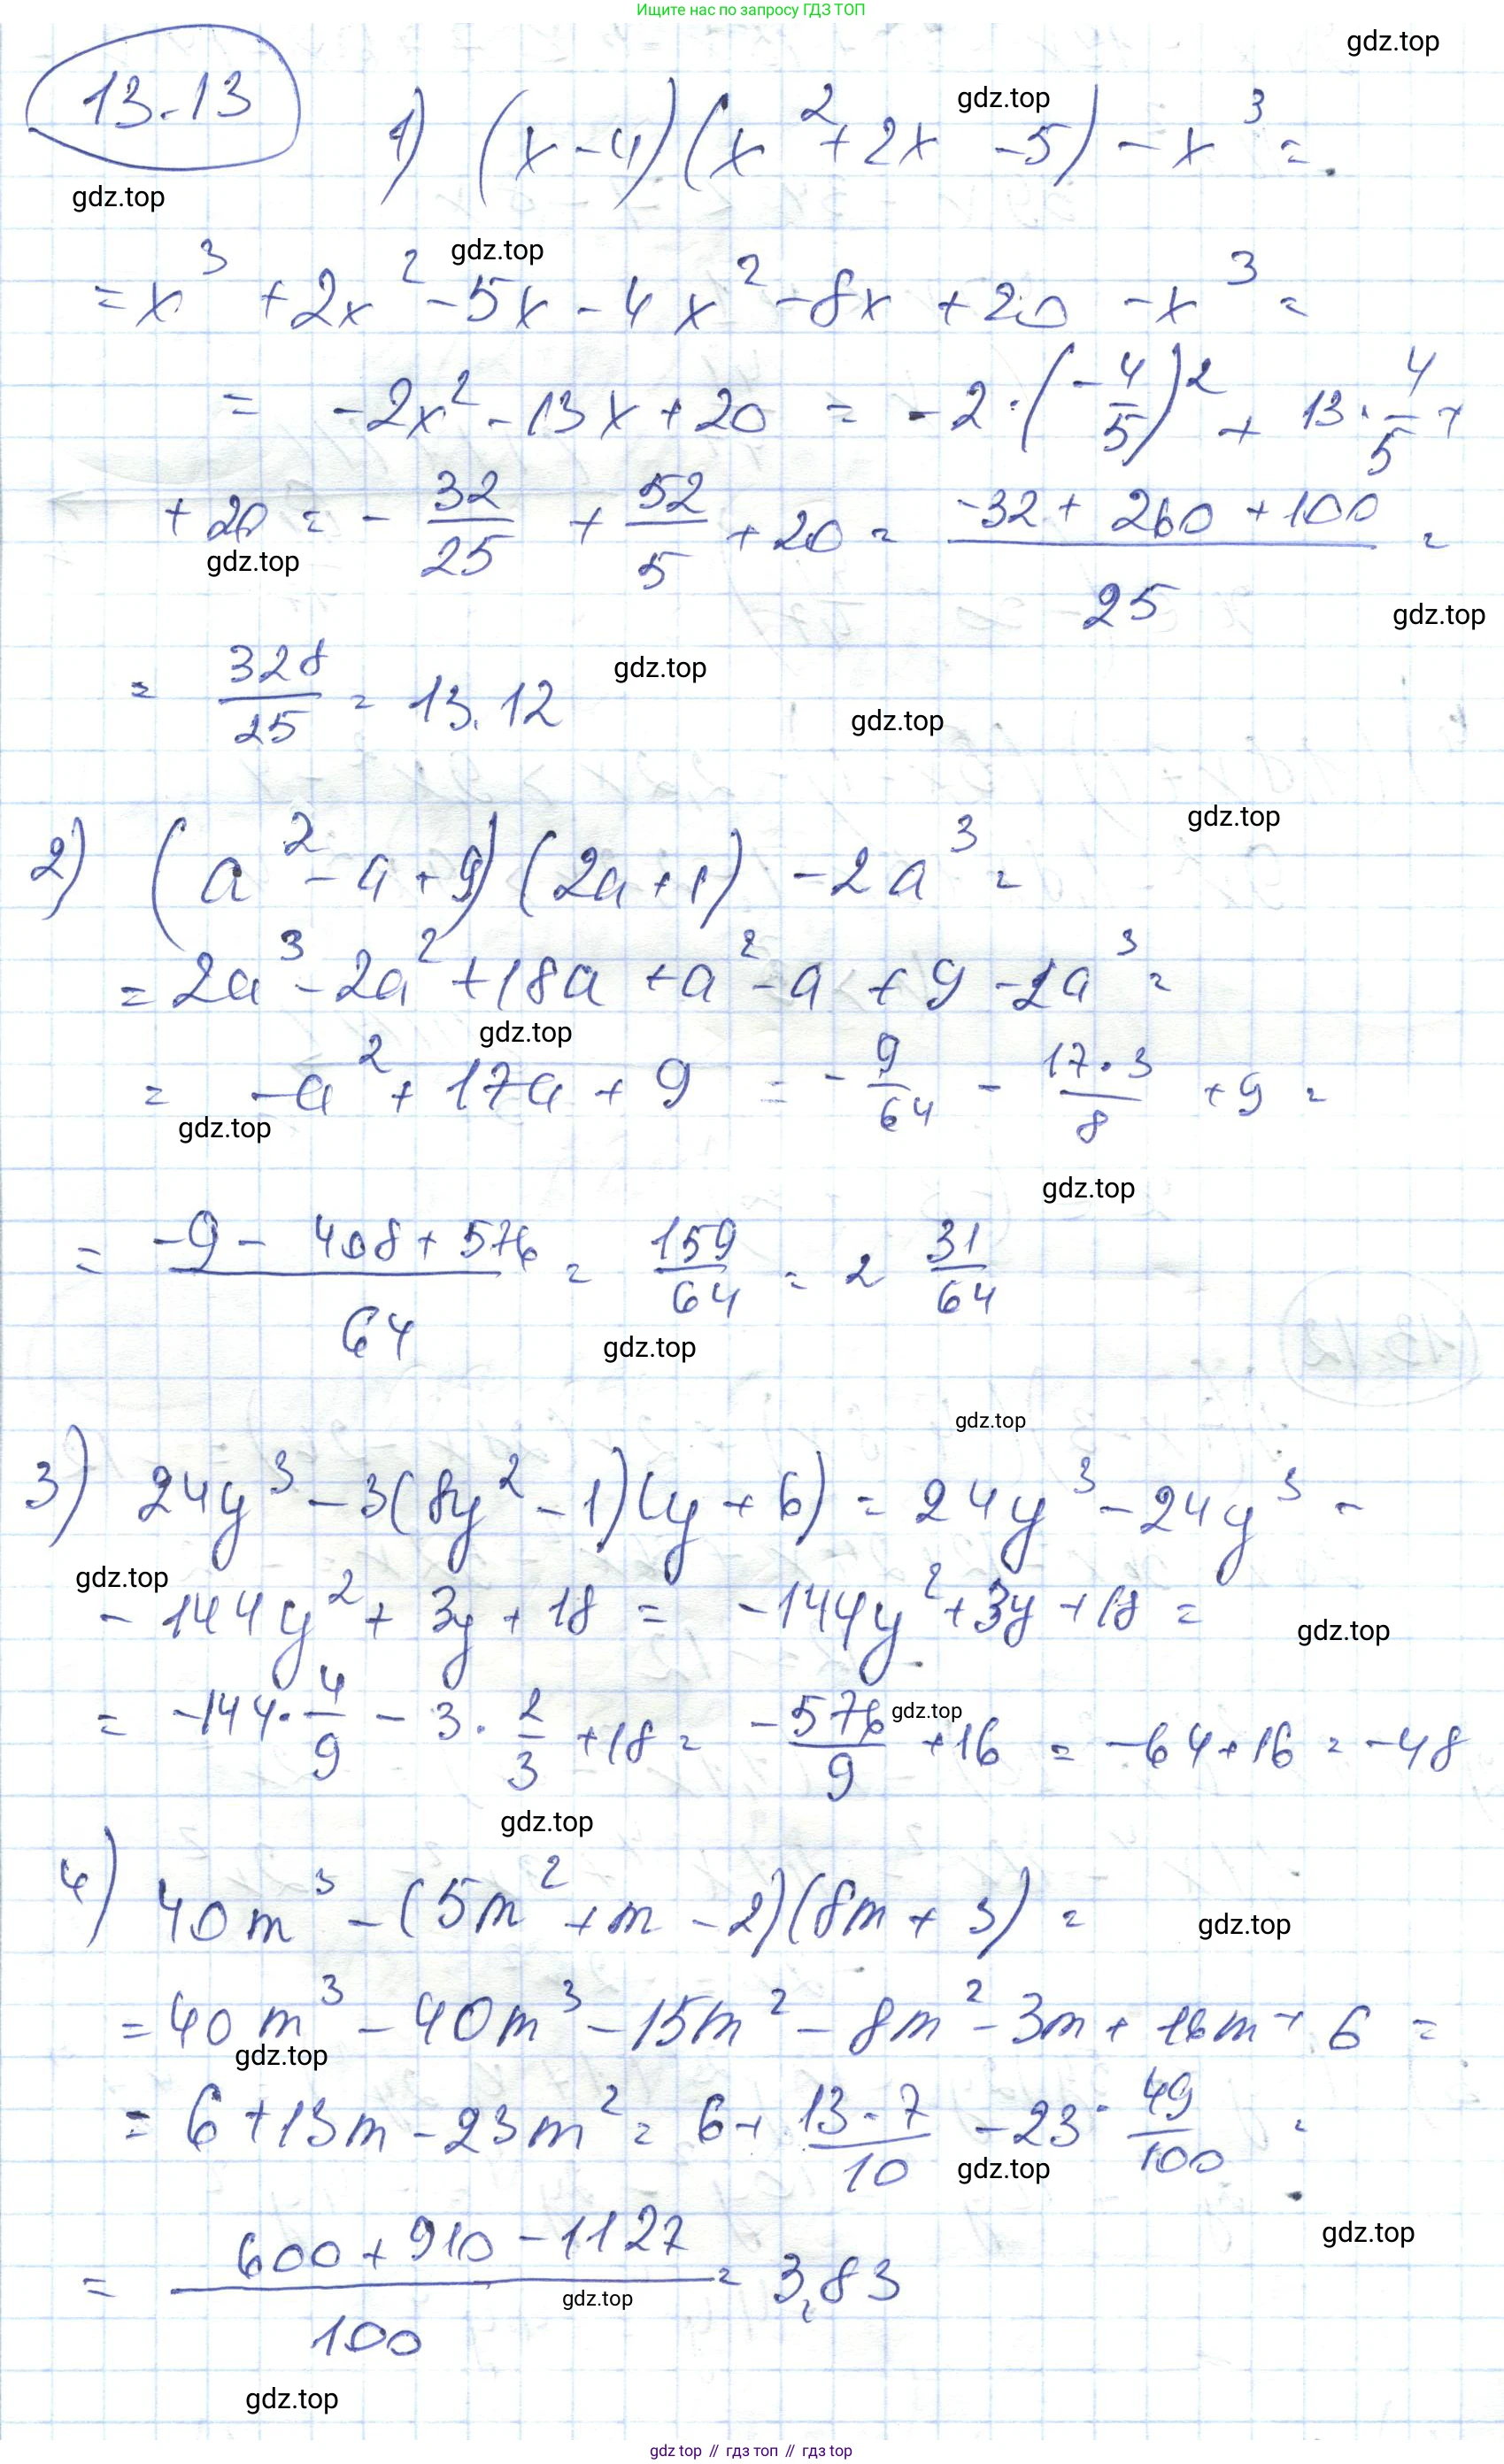 Ищите нас по запросу ГДЗ ТОП
gdz.top
13.13
gdz.top
1) (x-4)(x²+2x-5)-x³=
gdz.top
gdz.top
=x³+2x²-5x-4x²-8x+20-x³=
= -2x²-13x+20 = -2·(-4/5)²+13·4/5+
+20=-32/25+52/5+20=(-32+260+100)/25=
gdz.top
gdz.top
=328/25=13.12
gdz.top
gdz.top
gdz.top
2) (a²-a+9)(2a+1)-2a³=
=2a³-2a²+18a+a²-a+9-2a³=
gdz.top
= -a²+17a+9 = -9/64-17·3/8+9=
gdz.top
gdz.top
=(-9-408+576)/64=159/64=2 31/64
gdz.top
gdz.top
3) 24y³-3(8y²-1)(y+6)=24y³-24y³-
gdz.top
-144y²+3y+18=-144y²+3y+18=
gdz.top
=-144·4/9-3·2/3+18=-576/9+16=-64+16=-48
gdz.top
gdz.top
4) 40m³-(5m²+m-2)(8m+3)=
gdz.top
=40m³-40m³-15m²-8m²-3m+16m+6=
gdz.top
=6+13m-23m²=6+13·7/10-23·49/100=
gdz.top
gdz.top
=(600+910-1127)/100=3,83
gdz.top
gdz.top
gdz.top // гдз топ // гдз top